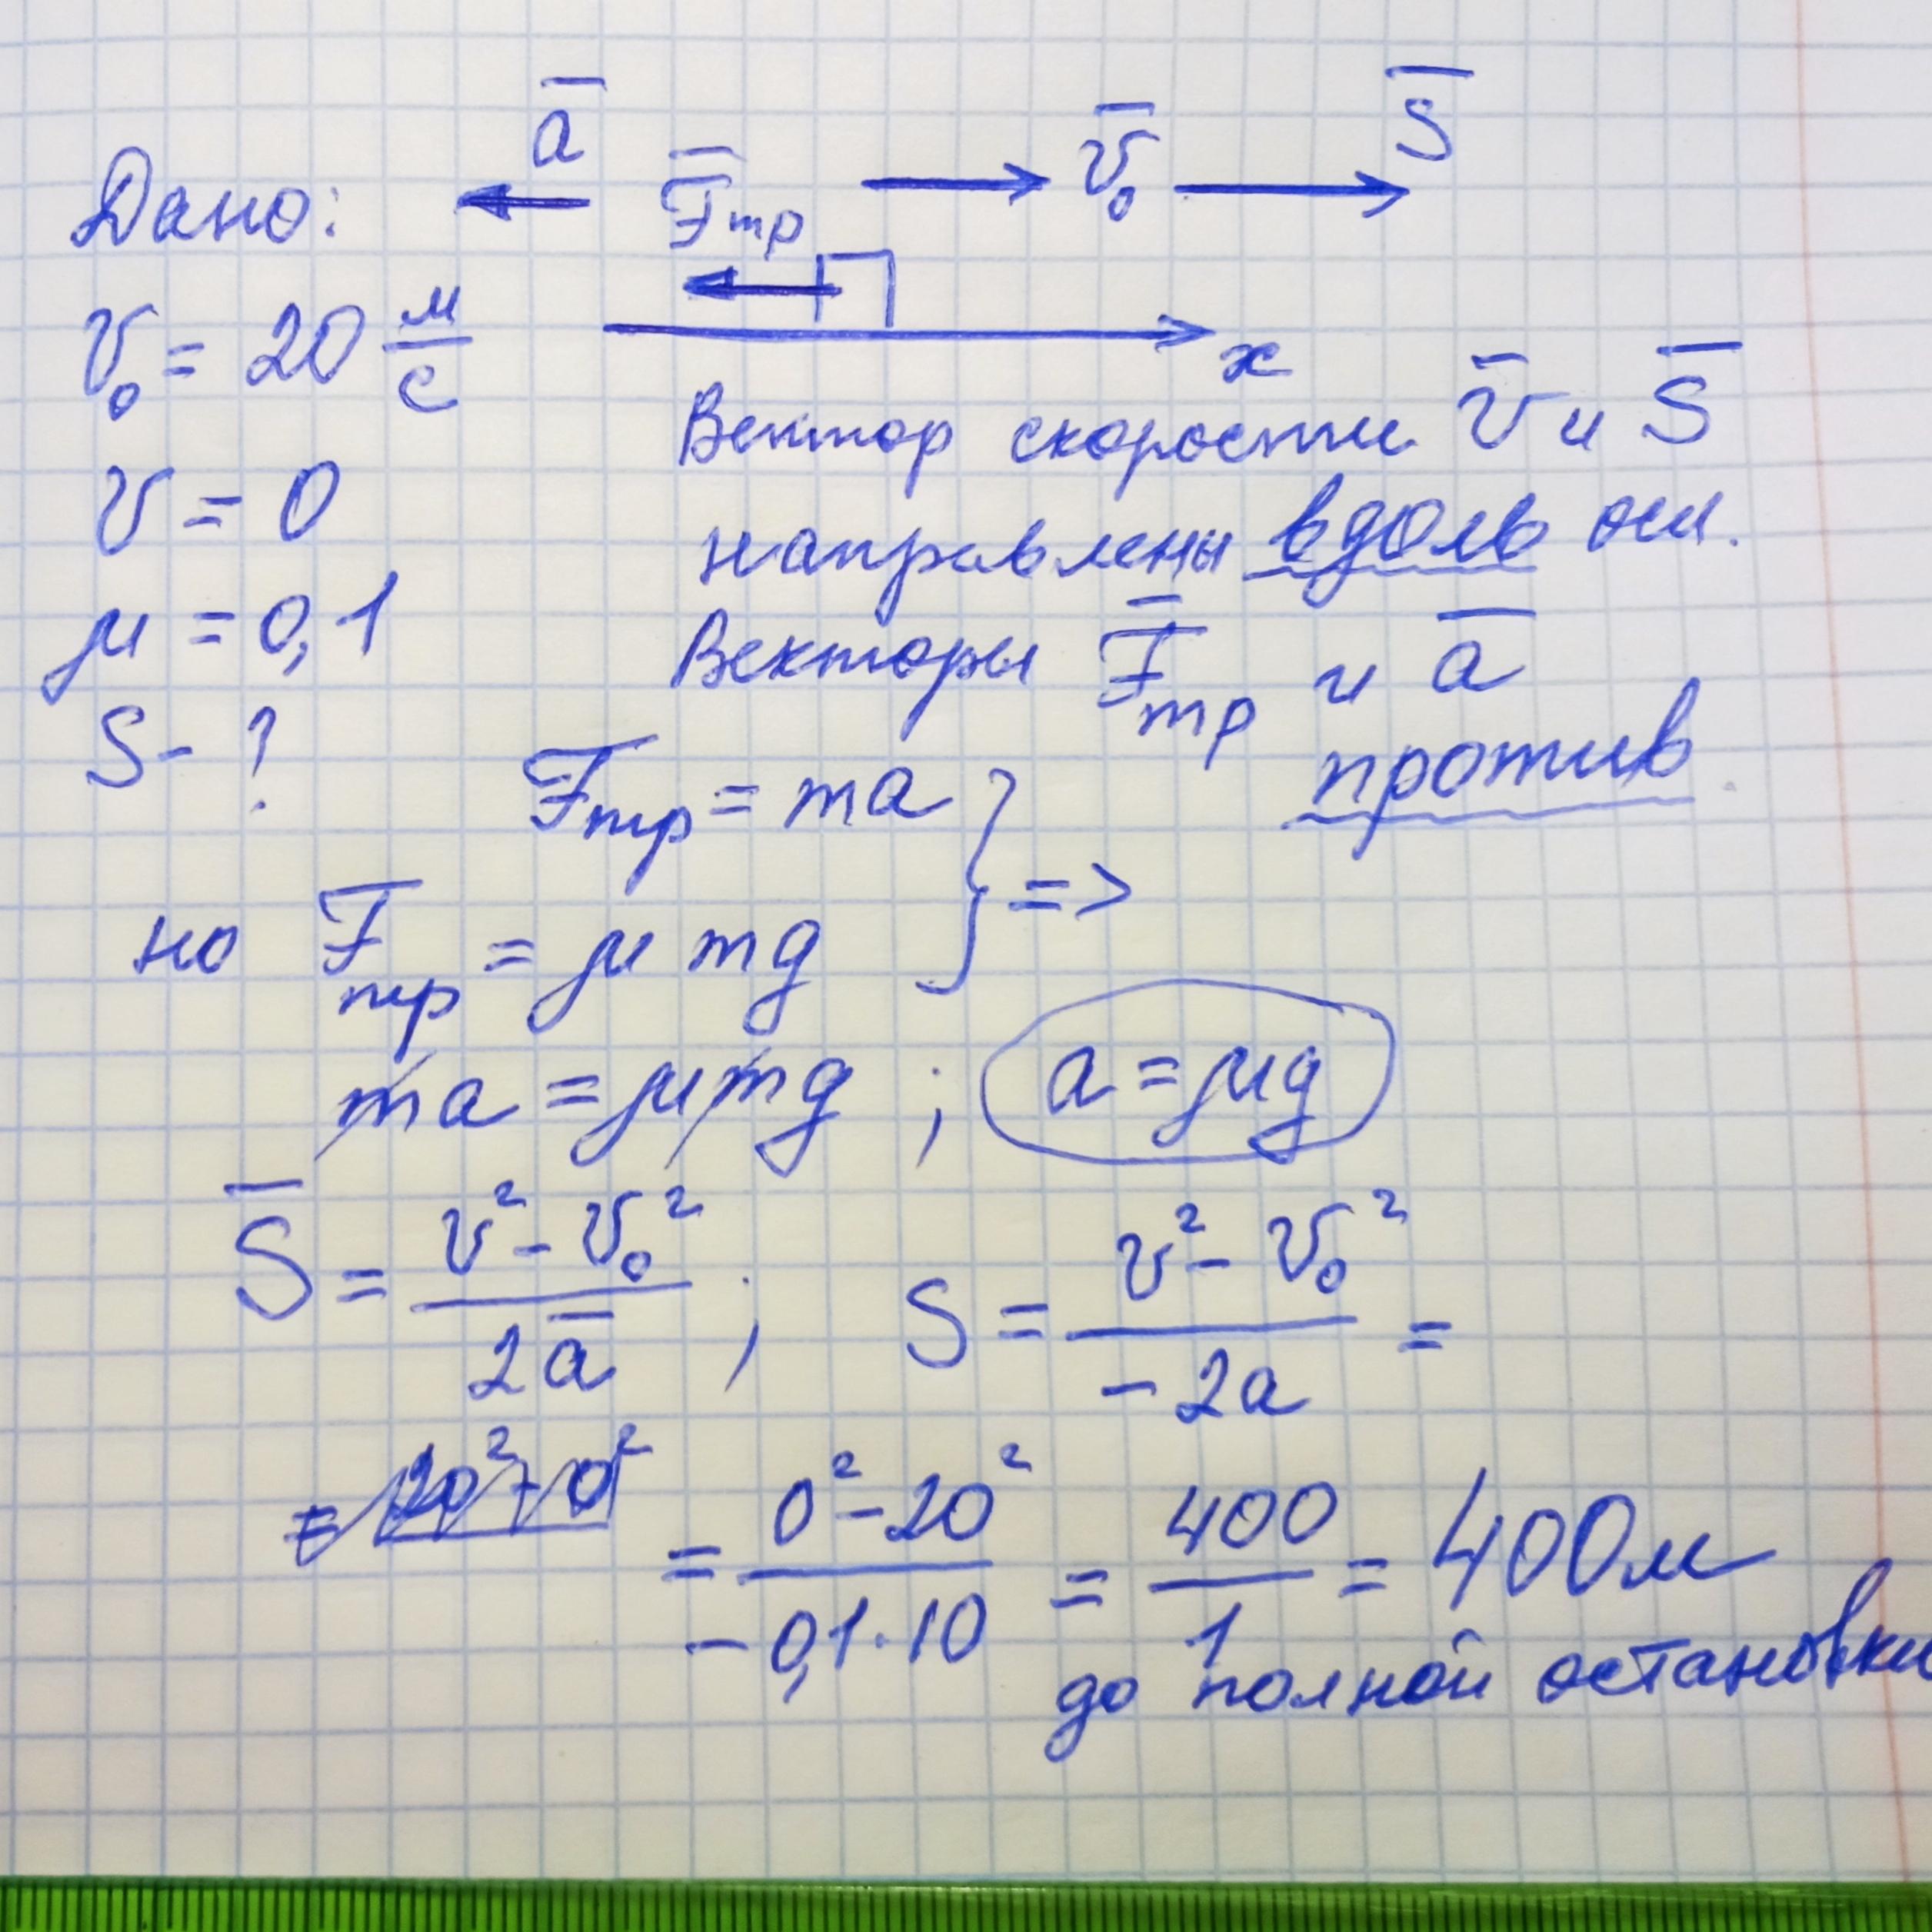 a̅ F̅тр v̅₀ S̅
Дано:
v₀ = 20 м/с
x
Вектор скорости v̅ и S̅
v = 0
направлены вдоль оси.
μ = 0,1
Векторы F̅тр и a̅
против
S - ?
F̅тр = ma } =>
но F̅тр = μmg
ma = μmg ; a = μg
S̅ = (v² - v₀²)/(2a̅) ; S = (v² - v₀²)/(-2a) =
= 20² - 0²
= (0² - 20²)/(-0,1·10) = 400/1 = 400м
до полной остановки